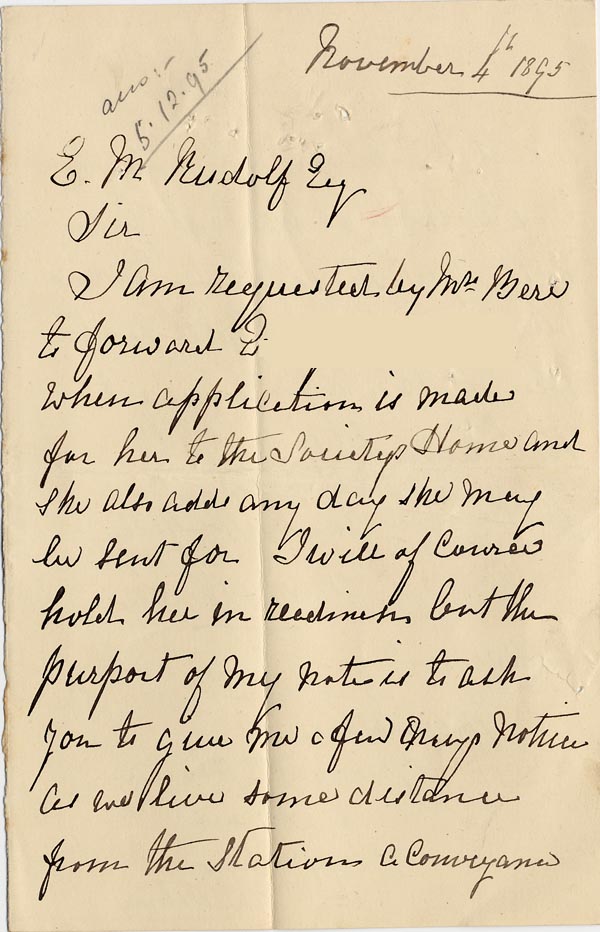 November 4th 1895
ans:-
5.12.95
E. M Rudolf Esq
Sir
I am requested by Mrs Bere
to forward E
when application is made
for her to the Societys Home and
she also adds any day she may
be sent for I will of course
hold her in readiness but the
purport of my note is to ask
you to give me a few days notice
as we live some distance
from the Station a Conveyance